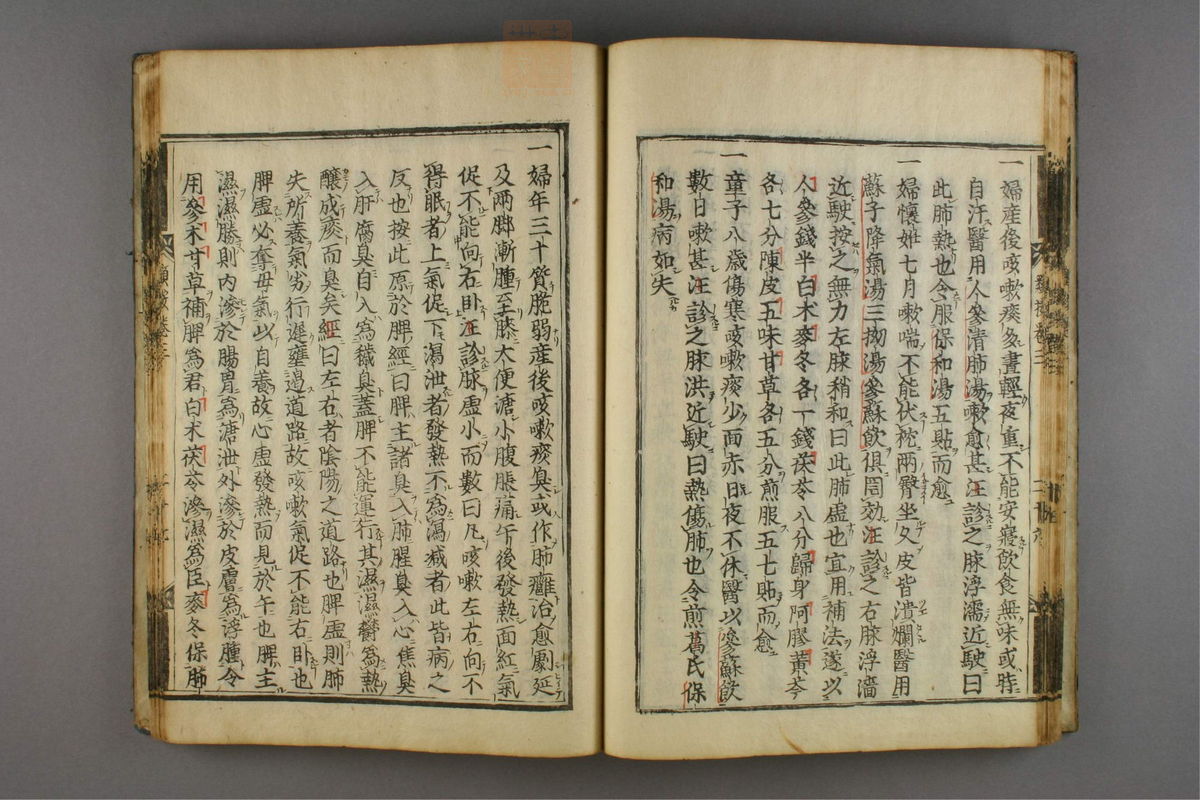 一婦産後咳嗽痰多晝輕夜重不能安寢飲食無味或時
自汗醫用人參清肺湯嗽愈甚汪診之脉浮濡近駛曰
此肺熱也令服保和湯五貼而愈
一婦懷妊七月嗽喘不能伏枕兩臀坐久皮皆潰爛醫用
蘇子降氣湯三拗湯參蘇飲俱罔効汪診之右脉浮濇
近駛按之無力左脉稍和曰此肺虛也宜用補法遂以
人參錢半白术麥冬各一錢茯苓八分歸身阿膠黃芩
各七分陳皮五味甘草各五分煎服五七貼而愈
一童子八歲傷寒咳嗽痰少面赤日夜不休醫以參蘇飲
數日嗽甚汪診之脉洪近駛曰熱傷肺也令煎葛氏保
和湯病如失
一婦年三十質脆弱産後咳嗽痰臭或作肺癰治愈劇延
及兩脚漸腫至膝大便溏小腹脹痛午後發熱面紅氣
促不能向右卧汪診脉虛小而數曰凡咳嗽左右向不
得眠者上氣促下瀉泄者發熱不為瀉减者此皆病之
反也按此原於脾經曰脾主諸臭入肺腥臭入心焦臭
入肝腐臭自入為穢臭蓋脾不能運行其濕濕鬱為熱
釀成痰而臭矣經曰左右者陰陽之道路也脾虛則肺
失所養氣劣行遲壅遏道路故咳嗽氣促不能右卧也
脾虛必奪母氣以自養故心虛發熱而見於午也脾主
濕濕勝則内滲於腸胃為溏泄外滲於皮膚為浮腫令
用參术甘草補脾為君白术茯苓滲濕為臣麥冬保肺